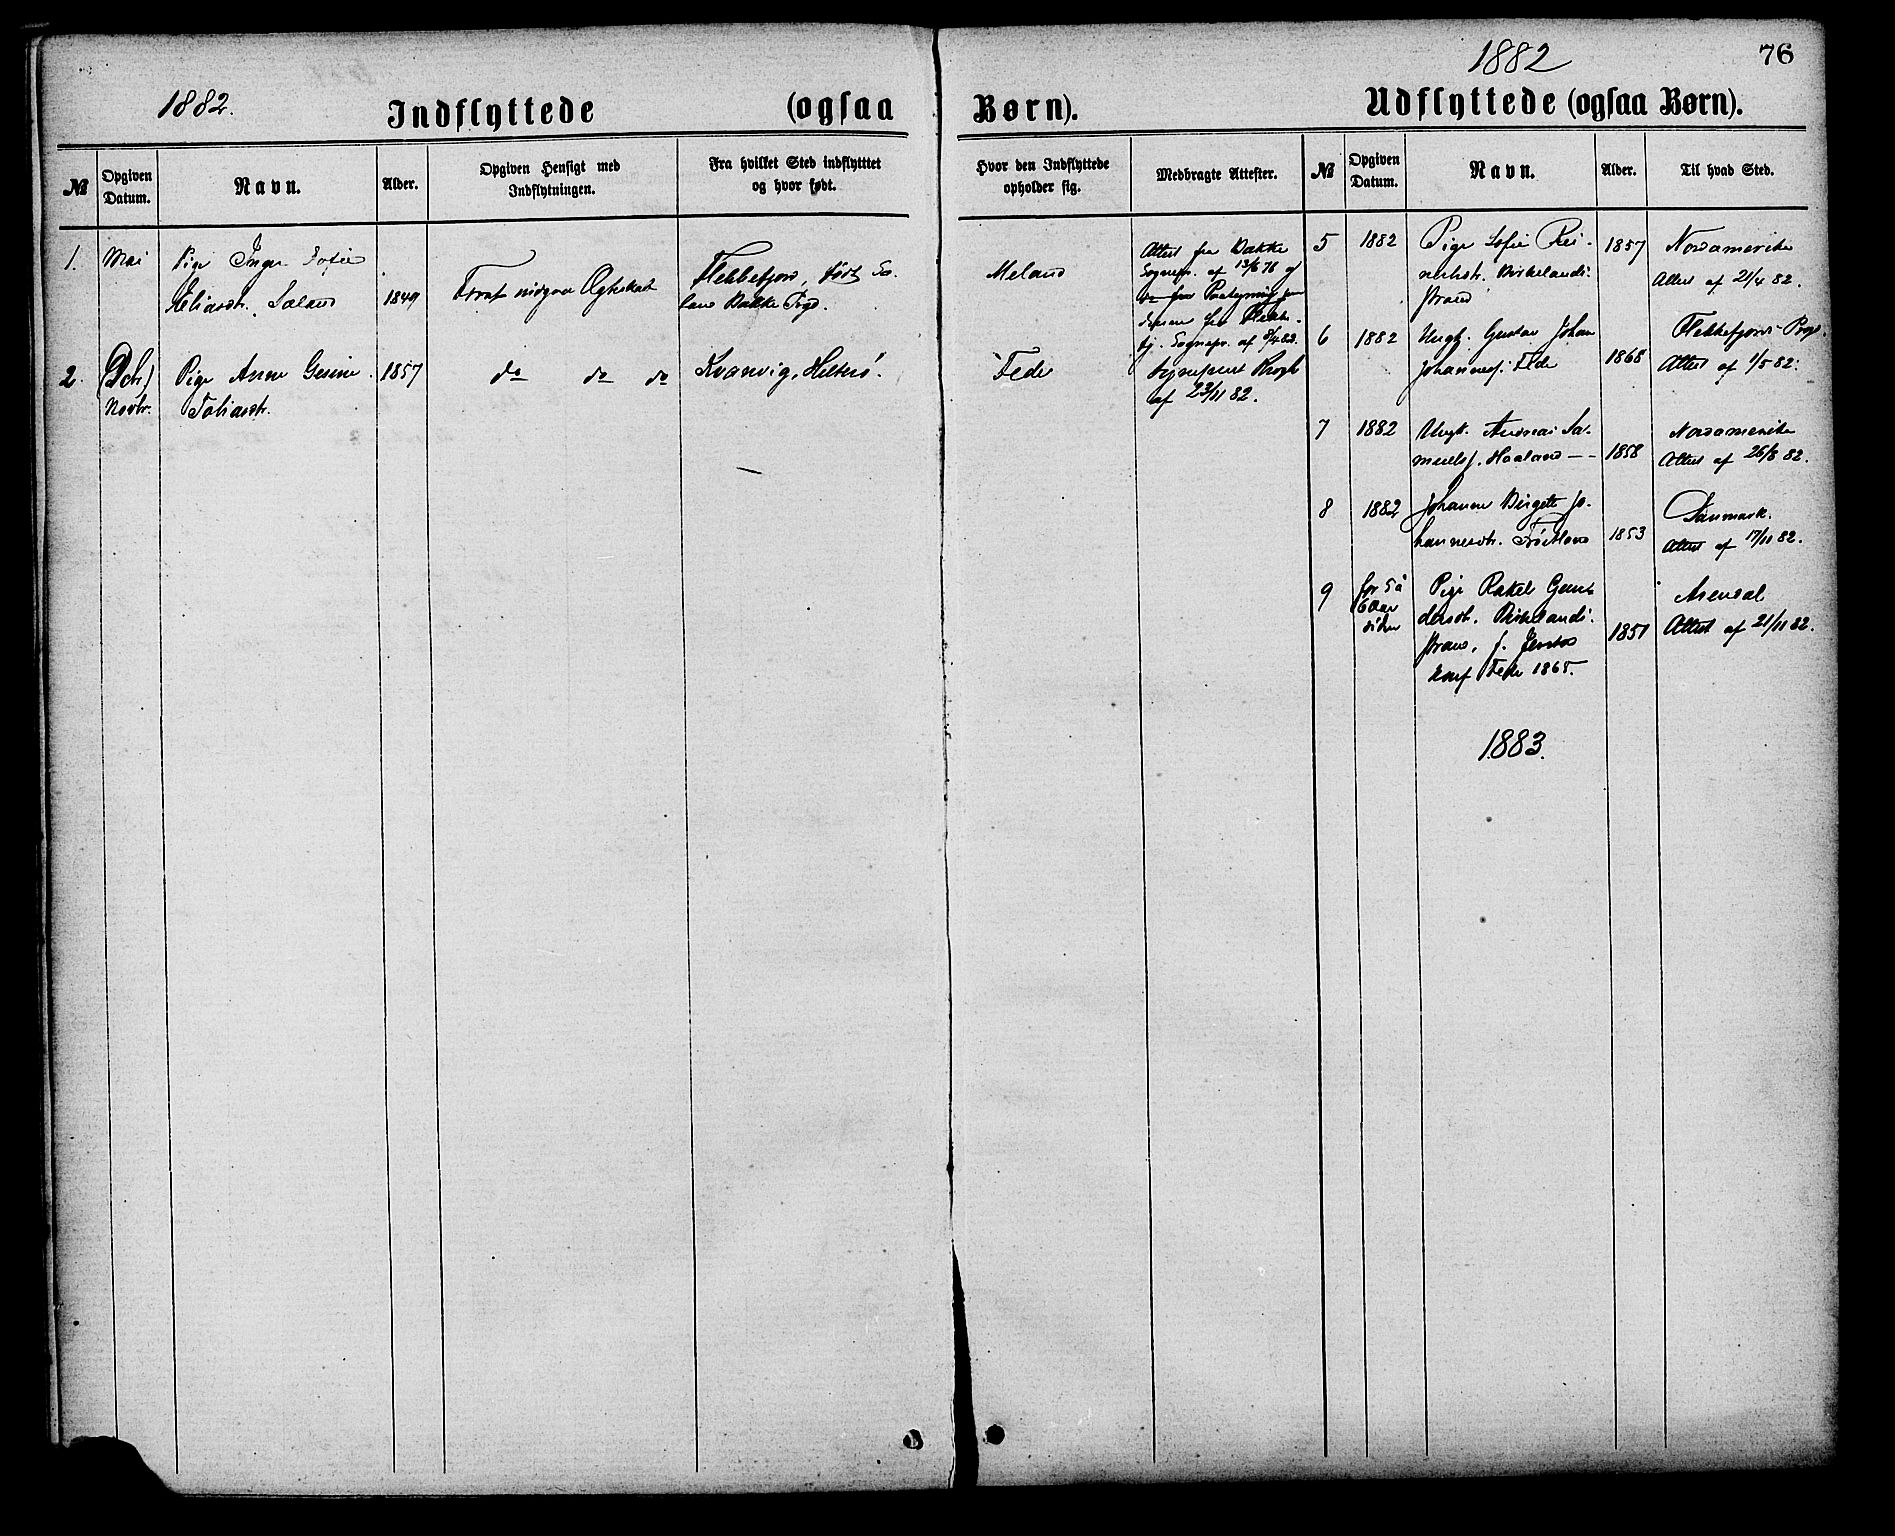 1882.
Indflyttede (ogsaa Børn).
№
Opgiven Datum.
Navn.
Alder.
Opgiven Hensigt med Indflytningen.
Fra hvilket Sted indflytttet og hvor født.
Hvor den Indflyttede opholder sig.
Medbragte Attester.
1. Mai Pige Inger Sofie
Eliasdtr. Sæland 1849
Forat indgaa Ægteskab
Flekkefjord, født Sæ-
land Bakke Prgd.
Meland
Attest fra Bakke
Sognepr. af 13/6 76 og
Sognepr. af 8/4 82.
2. (Octr.) Novbr. Pige Anne Gesine
Tobiasdtr.
1857
do do do
Kvanvig, Hitterø.
Fede
Krogh
af 23/11 82.
1882
76
Udflyttede (ogsaa Børn).
№
Opgiven Datum.
Navn.
Alder.
Til hvad Sted.
5 1882 Pige Sofie Rei-
Birkelands-
strand
1857
Nordamerika
Attest af 21/4 82.
6 1882 Ungk. Gustav Johan
Johanness. Fede
1868
Flekkefjord
Attest af 1/5 82.
7 1882 Ungk. Andreas Sa-
muels. Haaland
1858
Nordamerika
Attest af 26/8 82.
8 1882 Johanne Birgitte Jo-
hannesdtr.
1853
Danmark.
Attest af 17/11 82.
9 for 5 à
6 Aar
siden
Pige Rakel Gun-
dersdt. Birkelands-
strand, f.
konf Fede 1865.
1851
Arendal
Attest af 21/11 82.
1883.